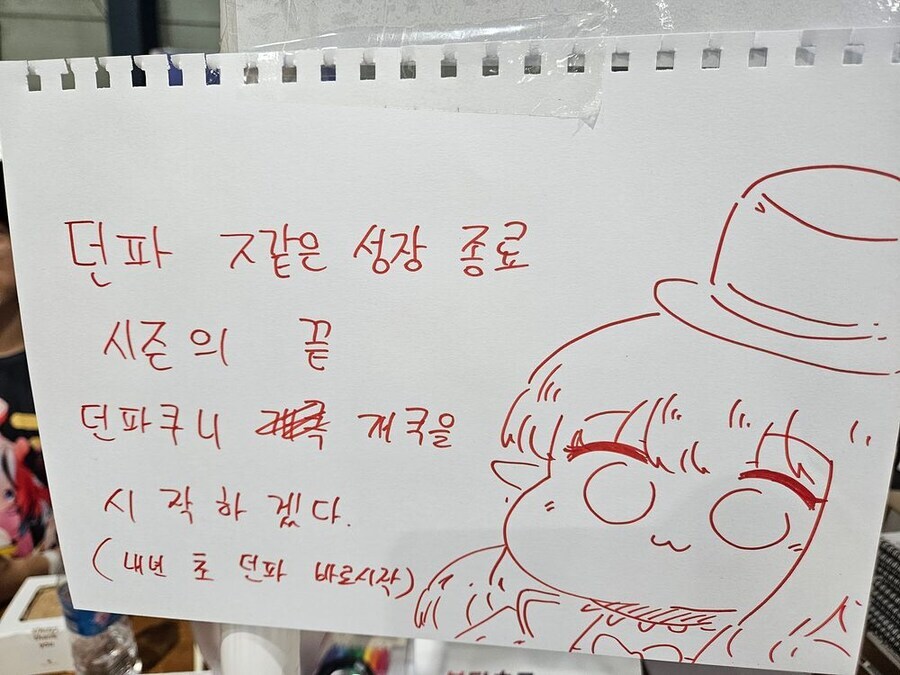 던파 ㅈ같은 성장 종료
시즌의 끝
던파쿠니 제국을
시작하겠다.
(내년 초 던파 바로시작)